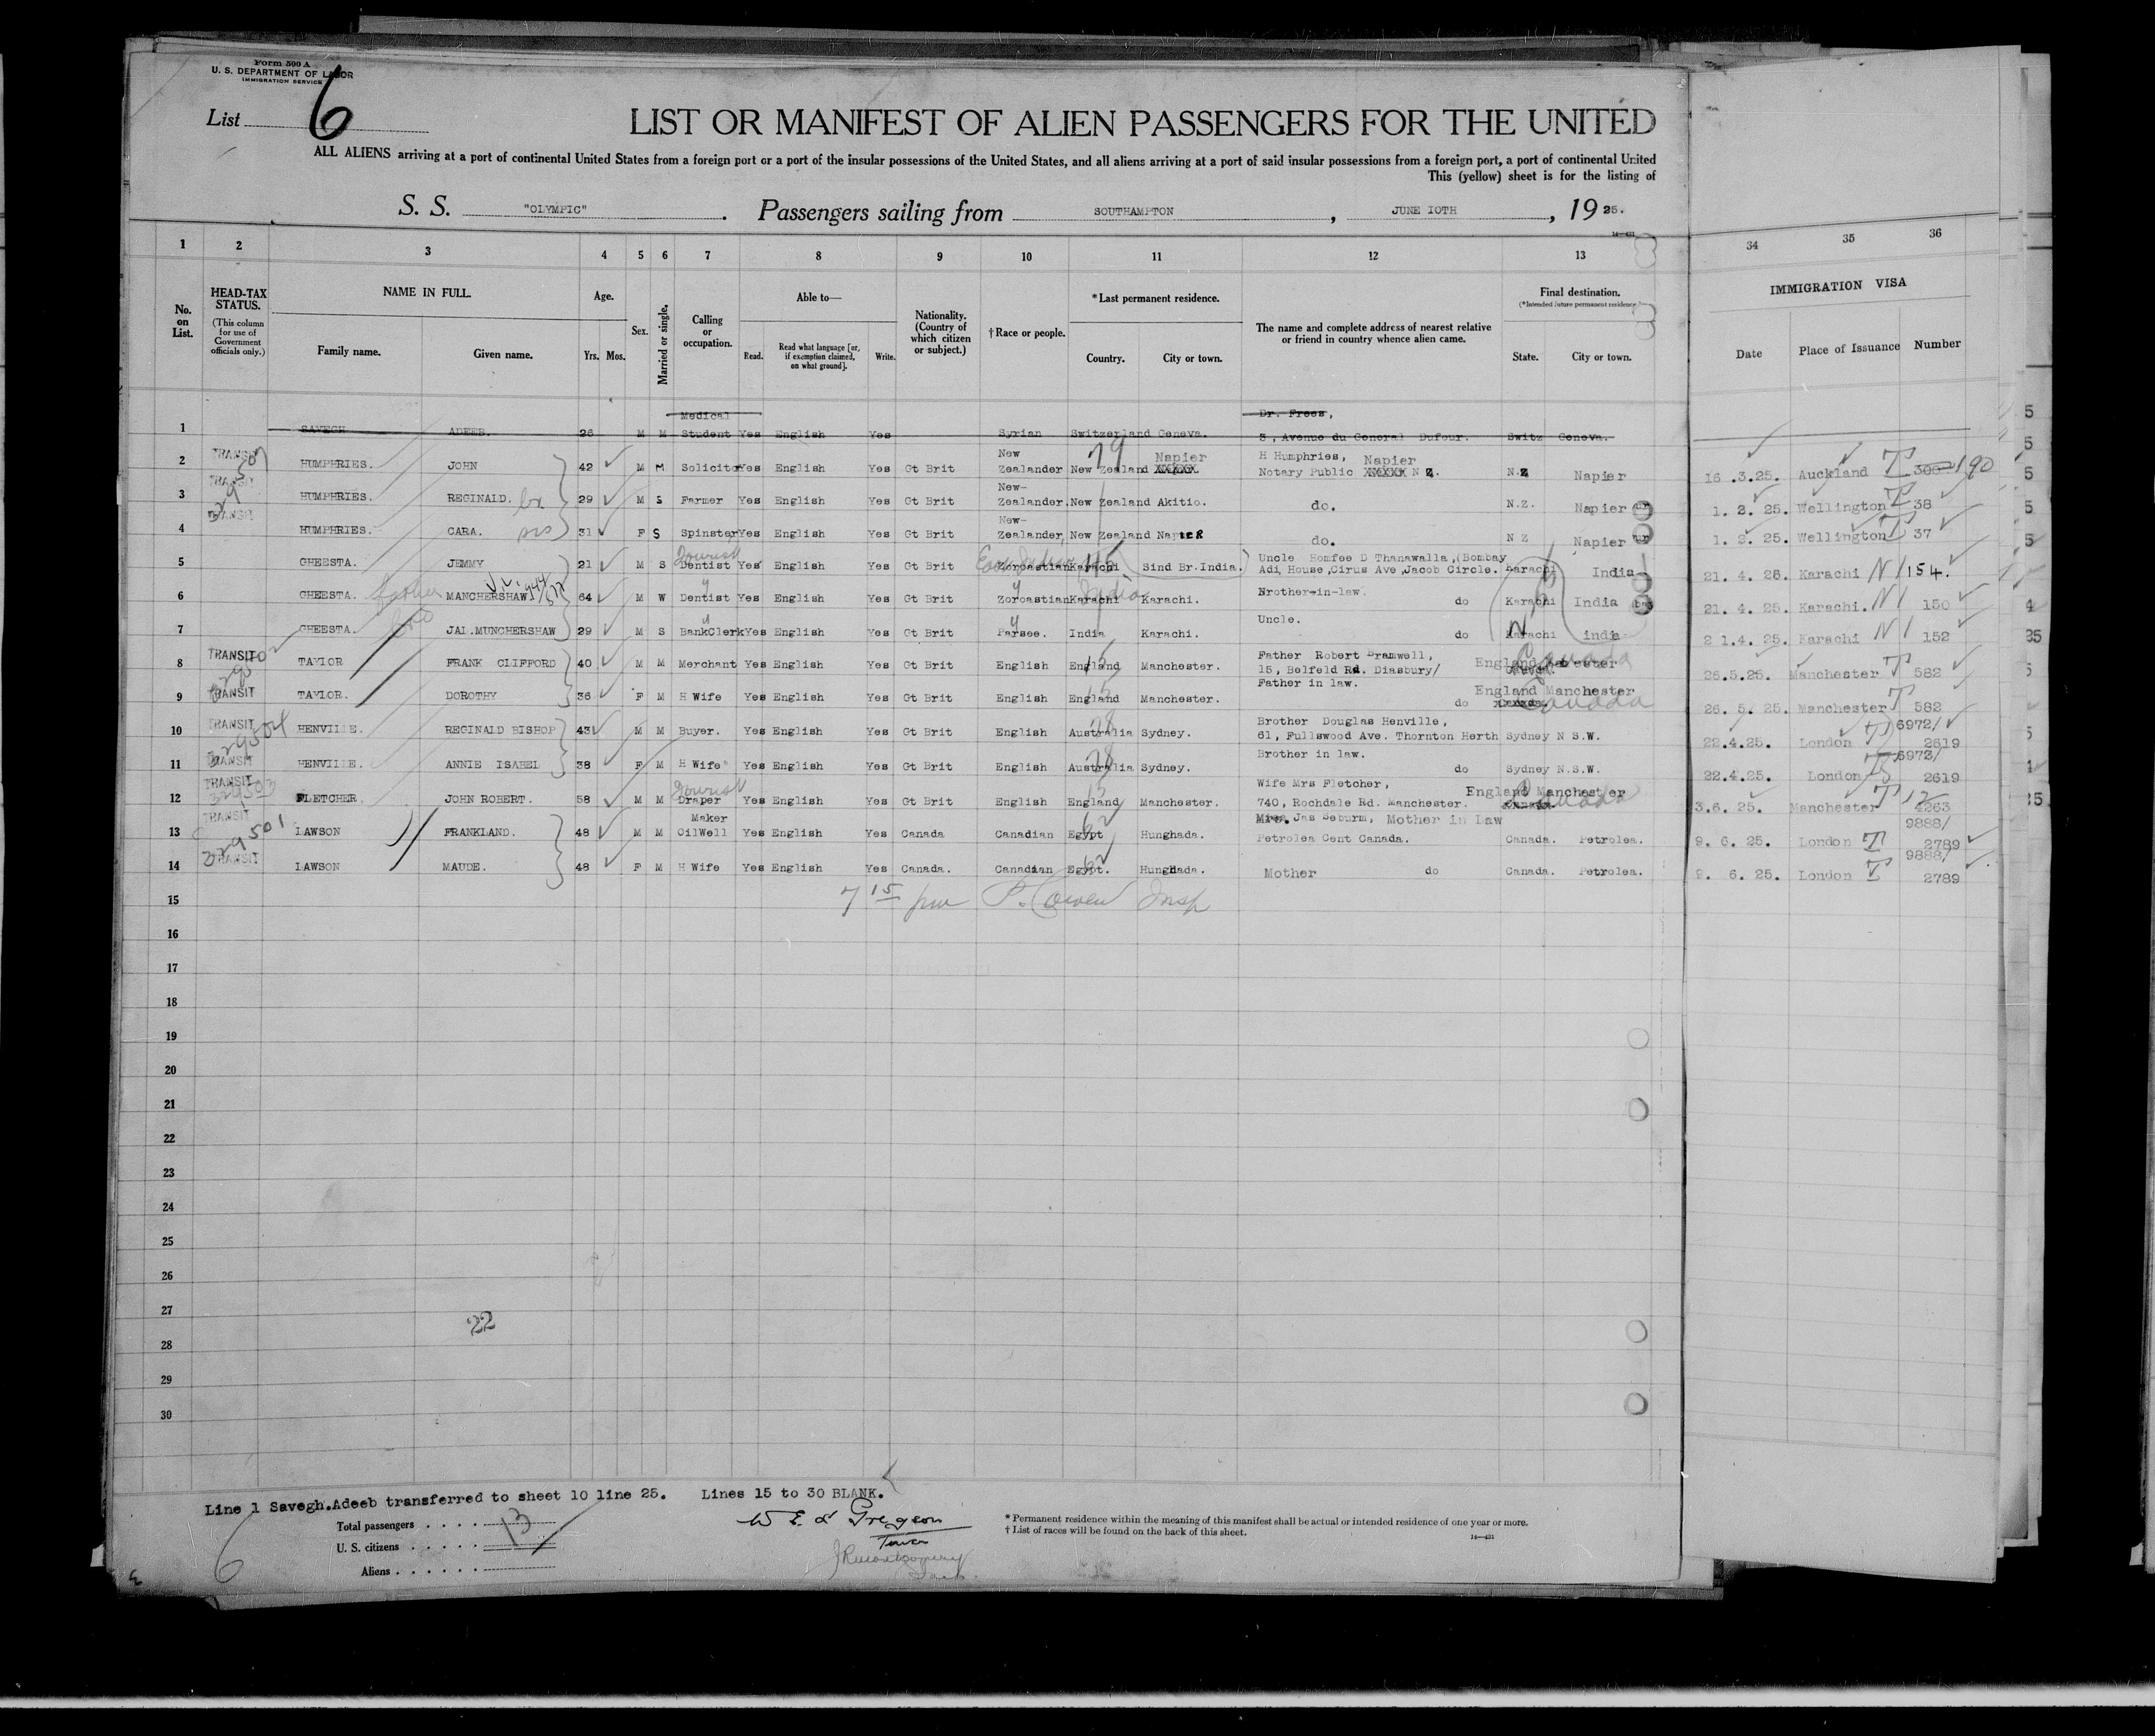 Form 500 A
U. S. DEPARTMENT OF LABOR
IMMIGRATION SERVICE
List 6
LIST OR MANIFEST OF ALIEN PASSENGERS FOR THE UNITED
ALL ALIENS arriving at a port of continental United States from a foreign port or a port of the insular possessions of the United States, and all aliens arriving at a port of said insular possessions from a foreign port, a port of continental United
This (yellow) sheet is for the listing of
S. S. "OLYMPIC". Passengers sailing from SOUTHAMPTON, JUNE 10TH, 1925.
1 2 3 4 5 6 7 8 9 10 11 12 13 34 35 36
No. on List.
HEAD-TAX STATUS.
(This column for use of Government officials only.)
NAME IN FULL.
Family name. Given name.
Age.
Yrs. Mos.
Sex.
Married or single.
Calling or occupation.
Able to—
Read. Read what language [or, if exemption claimed, on what ground]. Write.
Nationality. (Country of which citizen or subject.)
†Race or people.
*Last permanent residence.
Country. City or town.
The name and complete address of nearest relative or friend in country whence alien came.
Final destination.
(*Intended future permanent residence)
State. City or town.
IMMIGRATION VISA
Date Place of Issuance Number
1 SAVEGH ADEEB. 26 M M Medical Student Yes English Yes Syrian Switzerland Geneva. Dr. Frees, 3, Avenue du General Dufour. Switz Geneva.
2 TRANSIT HUMPHRIES. JOHN 42 M M Solicitor Yes English Yes Gt Brit New Zealander New Zealand Napier XXXXX H Humphries, Notary Public Napier XXXXX N Z. N.Z Napier 16 .3.25. Auckland T 300 190
3 TRANSIT HUMPHRIES. REGINALD. bx 29 M S Farmer Yes English Yes Gt Brit New-Zealander. New Zealand Akitio. do. N.Z. Napier 1. 2. 25. Wellington T 38
4 TRANSIT HUMPHRIES. CARA. sis 31 F S Spinster Yes English Yes Gt Brit New-Zealander, New Zealand Napier do. N Z Napier 1. 2. 25. Wellington T 37
5 GHEESTA. JEMMY 21 M S Tourist Dentist Yes English Yes Gt Brit Zoroastian Karachi Sind Br.India. Uncle Homfee D Thanawalla,(Bombay Adi, House,Cirus Ave,Jacob Circle. Karachi India 21. 4. 25. Karachi N 154.
6 GHEESTA. father MANCHERSHAW 64 M W Dentist Yes English Yes Gt Brit Zoroastian Karachi India Karachi. Brother-in-law. do Karachi India 21. 4. 25. Karachi. N 150
7 GHEESTA. bro JAL.MUNCHERSHAW 29 M S BankClerk Yes English Yes Gt Brit Parsee. India Karachi. Uncle. do Karachi india 2 1.4. 25. Karachi N 152
8 TRANSIT TAYLOR FRANK CLIFFORD 40 M M Merchant Yes English Yes Gt Brit English England 15 Manchester. Father Robert Bramwell, 15, Belfeld Rd. Diasbury/ England Manchester Canada 26.5.25. Manchester T 582
9 TRANSIT TAYLOR. DOROTHY 36 F M H Wife Yes English Yes Gt Brit English England 15 Manchester. Father in law. do England Manchester Canada 26. 5. 25. Manchester T 582
10 TRANSIT HENVILLE. REGINALD BISHOP 43 M M Buyer. Yes English Yes Gt Brit English Australia 28 Sydney. Brother Douglas Henville, 61, Fullswood Ave. Thornton Herth Sydney N S.W. 22.4.25. London 6972/ 2619
11 TRANSIT HENVILLE. ANNIE ISABEL 38 F M H Wife Yes English Yes Gt Brit English Australia 28 Sydney. Brother in law. do Sydney N.S.W. 22.4.25. London 6972/ 2619
12 TRANSIT FLETCHER. JOHN ROBERT. 58 M M Tourist Draper Yes English Yes Gt Brit English England 15 Manchester. Wife Mrs Fletcher, 740, Rochdale Rd. Manchester. England Manchester Canada 3.6. 25. Manchester T 12 4263
13 TRANSIT 329501 LAWSON FRANKLAND. 48 M M Maker OilWell Yes English Yes Canada Canadian Egypt 62 Hunghada. Jas Seburm, Mother in Law Petrolea Cent Canada. Canada. Petrolea. 9. 6. 25. London T 9888/ 2789
14 TRANSIT LAWSON MAUDE. 48 F M H Wife Yes English Yes Canada. Canadian Egypt. 62 Hunghada. Mother do Canada. Petrolea. 9. 6. 25. London T 9888/ 2789
15 7 15 pm P. Cowen Insp
16
17
18
19
20
21
22
23
24
25
26
27
22
28
29
30
Line 1 Savegh.Adeeb transferred to sheet 10 line 25. Lines 15 to 30 BLANK.
Total passengers . . . . 13
U. S. citizens . . . . .
Aliens . . . . . .
6
* Permanent residence within the meaning of this manifest shall be actual or intended residence of one year or more.
† List of races will be found on the back of this sheet.
14—431